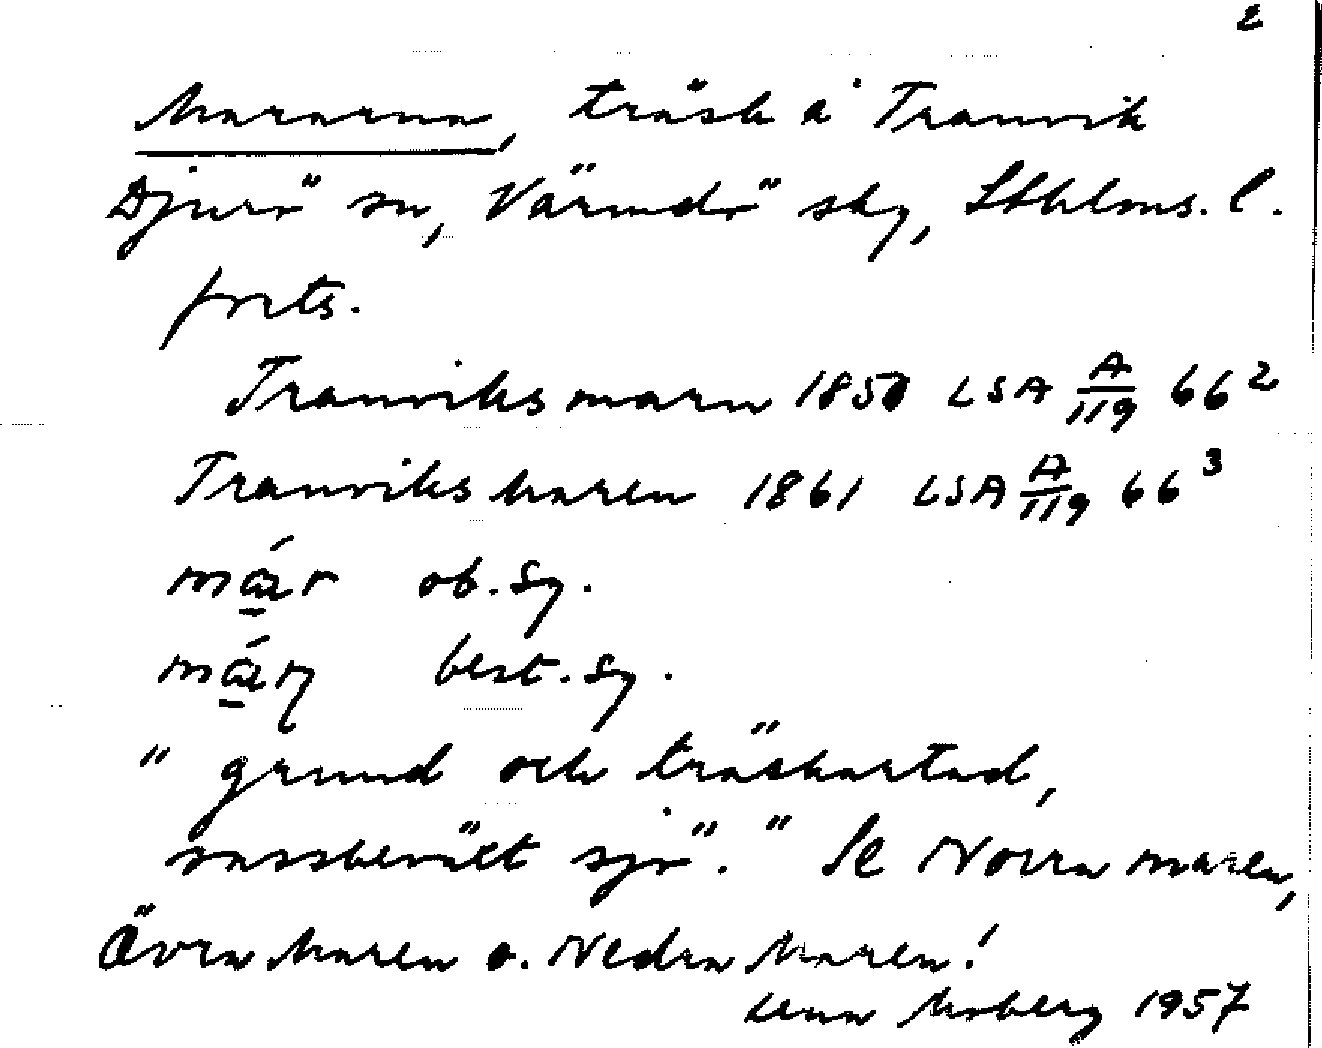 2
Mararna, träsk å Tranvik
Djurö sn, Värmdö skg, Sthlms. l.
forts.
Tranviks marn 1850 LSA A/119 66²
Tranviks Maren 1861 LSA A/119 66³
best. sg.
ob. sg.
" grund och träskartad,
vassbeväxt sjö." Se Norra maren,
Övra Maren o. Nedra Maren!
Lena Moberg 1957